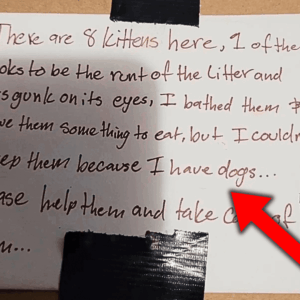 There are 8 kittens here, 1 of the
ooks to be the runt of the Litter and
s gunk on its eyes, I bathed them &
ve them something to eat, but I couldn
eep them because I have dogs...
ase help them and take of
m...